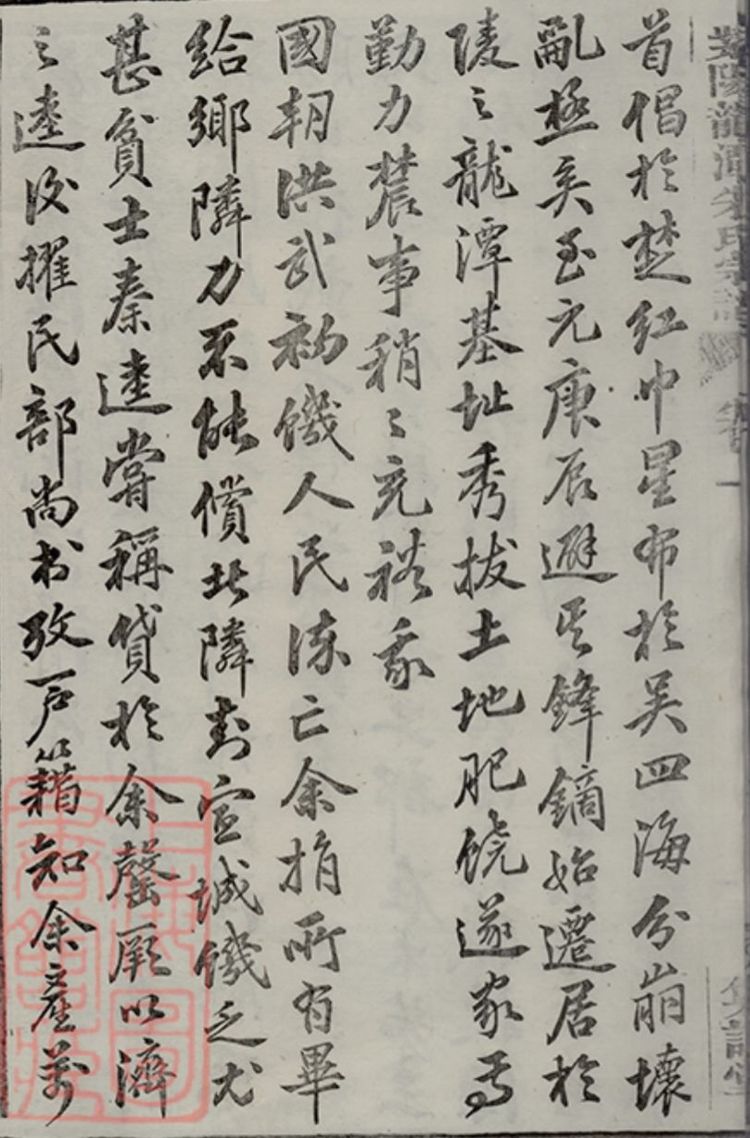 首倡於楚紅巾星布於吴四海分崩壞
亂極矣至元庚辰避其鋒鏑始遷居於
陵之龍潭基址秀拔土地肥饒遂家焉
勤力農事稍〻充裕我
國朝洪武初饑人民流亡余捐所有畢
給鄉隣力不能償北隣封宣城饑乏尤
甚貧士秦逵嘗稱貸於余罄厥以濟
之逵後擢民部尚书考戶籍知余產萬
龍潭朱氏宗譜